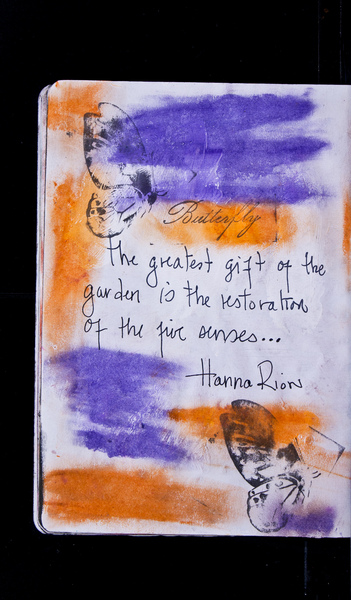 Butterfly
The greatest gift of the
garden is the restoration
of the five senses...
Hanna Rion